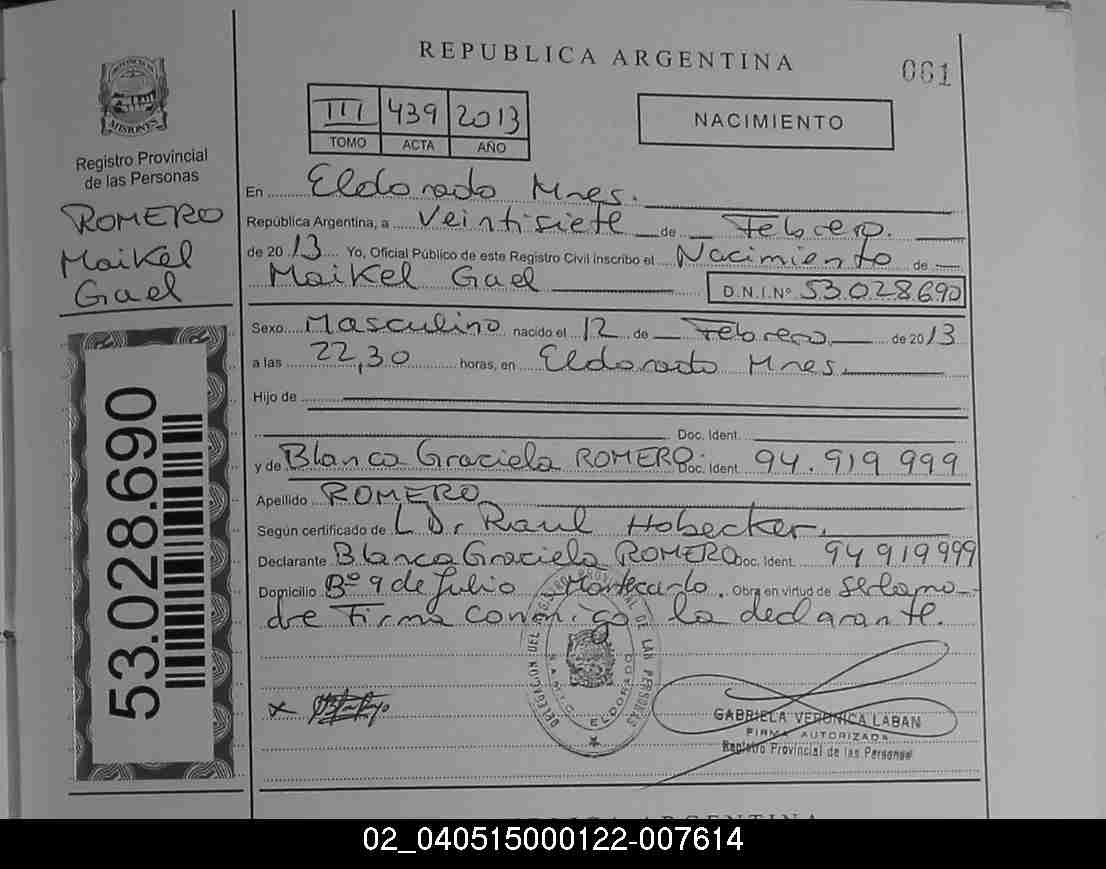 REPUBLICA ARGENTINA
061
PROVINCIA DE
MISIONES
Registro Provincial
de las Personas
ROMERO
Maikel
Gael
53.028.690
III 439 2013
TOMO ACTA AÑO
NACIMIENTO
En Eldorado Mnes.
República Argentina, a veintisiete de Febrero.
de 2013 Yo, Oficial Público de este Registro Civil inscribo el Nacimiento de
Maikel Gael D.N.I.Nº 53.028.690
Sexo Masculino nacido el 12 de Febrero de 2013
a las 22,30 horas, en Eldorado Mnes.
Hijo de
Doc. Ident.
y de Blanca Graciela ROMERO. Doc. Ident. 94.919 999
Apellido ROMERO
Según certificado de L Dr Raul Hobecker.
Declarante Blanca Graciela ROMERO Doc. Ident. 94 919 999
Domicilio Bº 9 de Julio Montecarlo. Obra en virtud de ser la ma-
dre Firma conmigo la declarante.
DELEGACION DEL REGISTRO PROVINCIAL DE LAS PERSONAS
ELDORADO
x
GABRIELA VERONICA LABAN
FIRMA AUTORIZADA
Registro Provincial de las Personas
REPUBLICA ARGENTINA
02_040515000122-007614